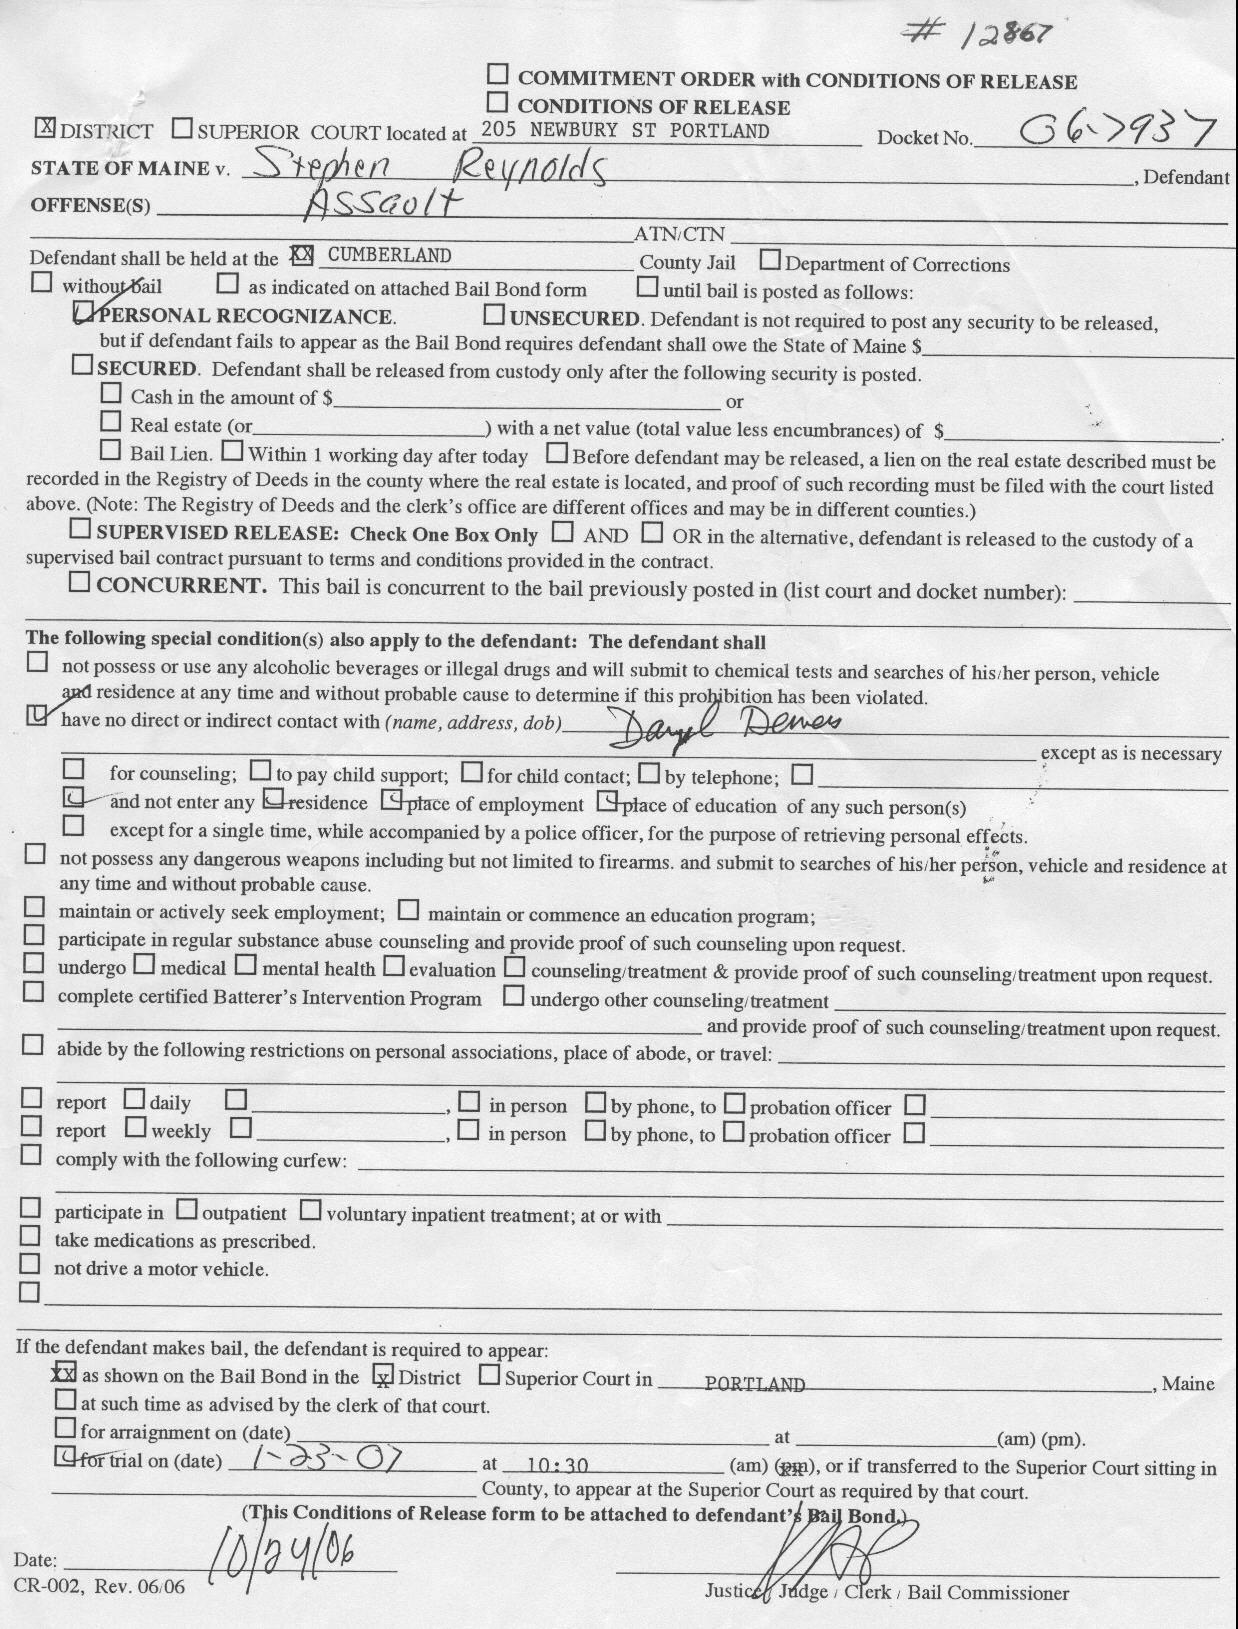 # 12867
☐ COMMITMENT ORDER with CONDITIONS OF RELEASE
☐ CONDITIONS OF RELEASE
☒ DISTRICT ☐ SUPERIOR COURT located at 205 NEWBURY ST PORTLAND Docket No. 06-7937
STATE OF MAINE v. Stephen Reynolds, Defendant
OFFENSE(S) Assault
ATN/CTN
Defendant shall be held at the XX CUMBERLAND County Jail ☐ Department of Corrections
☐ without bail ☐ as indicated on attached Bail Bond form ☐ until bail is posted as follows:
☑ PERSONAL RECOGNIZANCE. ☐ UNSECURED. Defendant is not required to post any security to be released,
but if defendant fails to appear as the Bail Bond requires defendant shall owe the State of Maine $
☐ SECURED. Defendant shall be released from custody only after the following security is posted.
☐ Cash in the amount of $ or
☐ Real estate (or ) with a net value (total value less encumbrances) of $ .
☐ Bail Lien. ☐ Within 1 working day after today ☐ Before defendant may be released, a lien on the real estate described must be
recorded in the Registry of Deeds in the county where the real estate is located, and proof of such recording must be filed with the court listed
above. (Note: The Registry of Deeds and the clerk's office are different offices and may be in different counties.)
☐ SUPERVISED RELEASE: Check One Box Only ☐ AND ☐ OR in the alternative, defendant is released to the custody of a
supervised bail contract pursuant to terms and conditions provided in the contract.
☐ CONCURRENT. This bail is concurrent to the bail previously posted in (list court and docket number):
The following special condition(s) also apply to the defendant: The defendant shall
☐ not possess or use any alcoholic beverages or illegal drugs and will submit to chemical tests and searches of his/her person, vehicle
and residence at any time and without probable cause to determine if this prohibition has been violated.
☑ have no direct or indirect contact with (name, address, dob) Daryl Demers
except as is necessary
☐ for counseling; ☐ to pay child support; ☐ for child contact; ☐ by telephone; ☐
☑ and not enter any ☑ residence ☑ place of employment ☑ place of education of any such person(s)
☐ except for a single time, while accompanied by a police officer, for the purpose of retrieving personal effects.
☐ not possess any dangerous weapons including but not limited to firearms. and submit to searches of his/her person, vehicle and residence at
any time and without probable cause.
☐ maintain or actively seek employment; ☐ maintain or commence an education program;
☐ participate in regular substance abuse counseling and provide proof of such counseling upon request.
☐ undergo ☐ medical ☐ mental health ☐ evaluation ☐ counseling/treatment & provide proof of such counseling/treatment upon request.
☐ complete certified Batterer's Intervention Program ☐ undergo other counseling/treatment
and provide proof of such counseling/treatment upon request.
☐ abide by the following restrictions on personal associations, place of abode, or travel:
☐ report ☐ daily ☐ , ☐ in person ☐ by phone, to ☐ probation officer ☐
☐ report ☐ weekly ☐ , ☐ in person ☐ by phone, to ☐ probation officer ☐
☐ comply with the following curfew:
☐ participate in ☐ outpatient ☐ voluntary inpatient treatment; at or with
☐ take medications as prescribed.
☐ not drive a motor vehicle.
☐
If the defendant makes bail, the defendant is required to appear:
XX as shown on the Bail Bond in the ☒ District ☐ Superior Court in PORTLAND, Maine
☐ at such time as advised by the clerk of that court.
☐ for arraignment on (date) at (am) (pm).
☑ for trial on (date) 1-23-07 at 10:30 (am) (pm), or if transferred to the Superior Court sitting in
County, to appear at the Superior Court as required by that court.
(This Conditions of Release form to be attached to defendant's Bail Bond.)
Date: 10/24/06
CR-002, Rev. 06/06 Justice / Judge / Clerk / Bail Commissioner